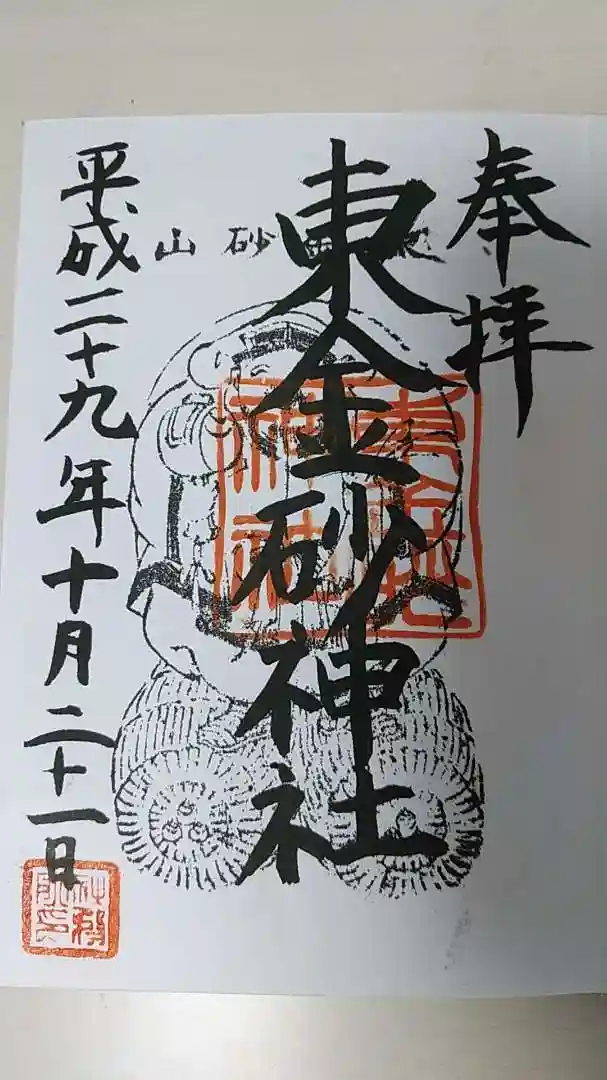 奉拝
東金砂神社
山砂
平成二十九年十月二十一日